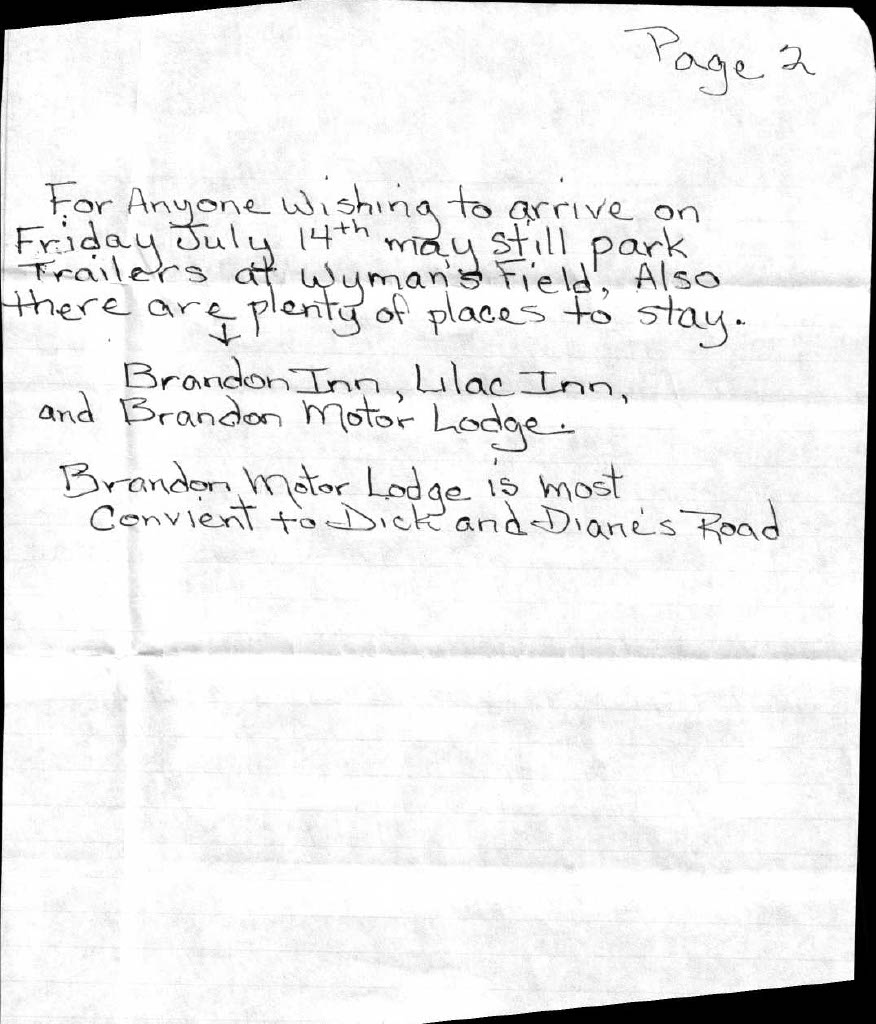 Page 2
For Anyone Wishing to arrive on
Friday July 14th may still park
Trailers at Wyman's Field, Also
there are plenty of places to stay.
↓
Brandon Inn, Lilac Inn,
and Brandon Motor Lodge.
Brandon Motor Lodge is most
Convient to Dick and Diane's Road